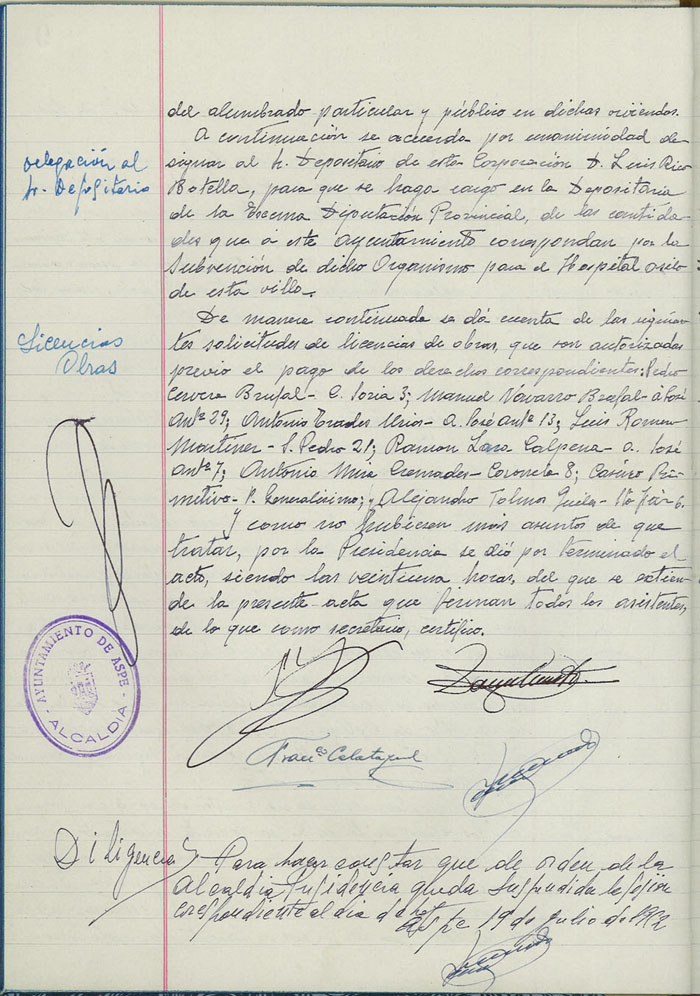 del alumbrado particular y público en dichas viviendas.
Delegación al
Sr. Depositario
A continuación se acuerda por unanimidad de-
signar al Sr. Depositario de esta Corporación D. Luis Rico
Botella, para que se haga cargo en la Depositaria
de la Excma Diputación Provincial, de las cantida-
des que á este Ayuntamiento correspondan por la
Subvención de dicho Organismo para el Hospital asilo
de esta villa.
Licencias
Obras
De manera continuada se dá cuenta de las siguien-
tes solicitudes de licencias de obras, que son autorizadas
previo el pago de los derechos correspondientes: Pedro
Cervera Brufal- C. Soria 3; Manuel Navarro Brufal- á José
Antº 29; Antonio Prades - A. José Antº 13; Luis Romero
Martinez- S. Pedro 21; Ramon Lara Calpena- a. José
Antº 7; Antonio Mira Cremades- Coronela 8; Casino Pri-
mitivo- P. Generalísimo; y Alejandro
Y como no hubiesen mas asuntos de que
tratar, por la Presidencia se dió por terminado el
acto, siendo las veintiuna horas, del que se extien-
de la presente acta que firman todos los asistentes,
de lo que como secretario, certifico.
AYUNTAMIENTO DE ASPE
ALCALDIA
Franco Calatayud
Diligencia Para hacer constar que de orden de la
Alcaldia Presidencia queda suspendida la sesión
correspondiente al dia de hoy
Aspe 19 de Julio de 1962